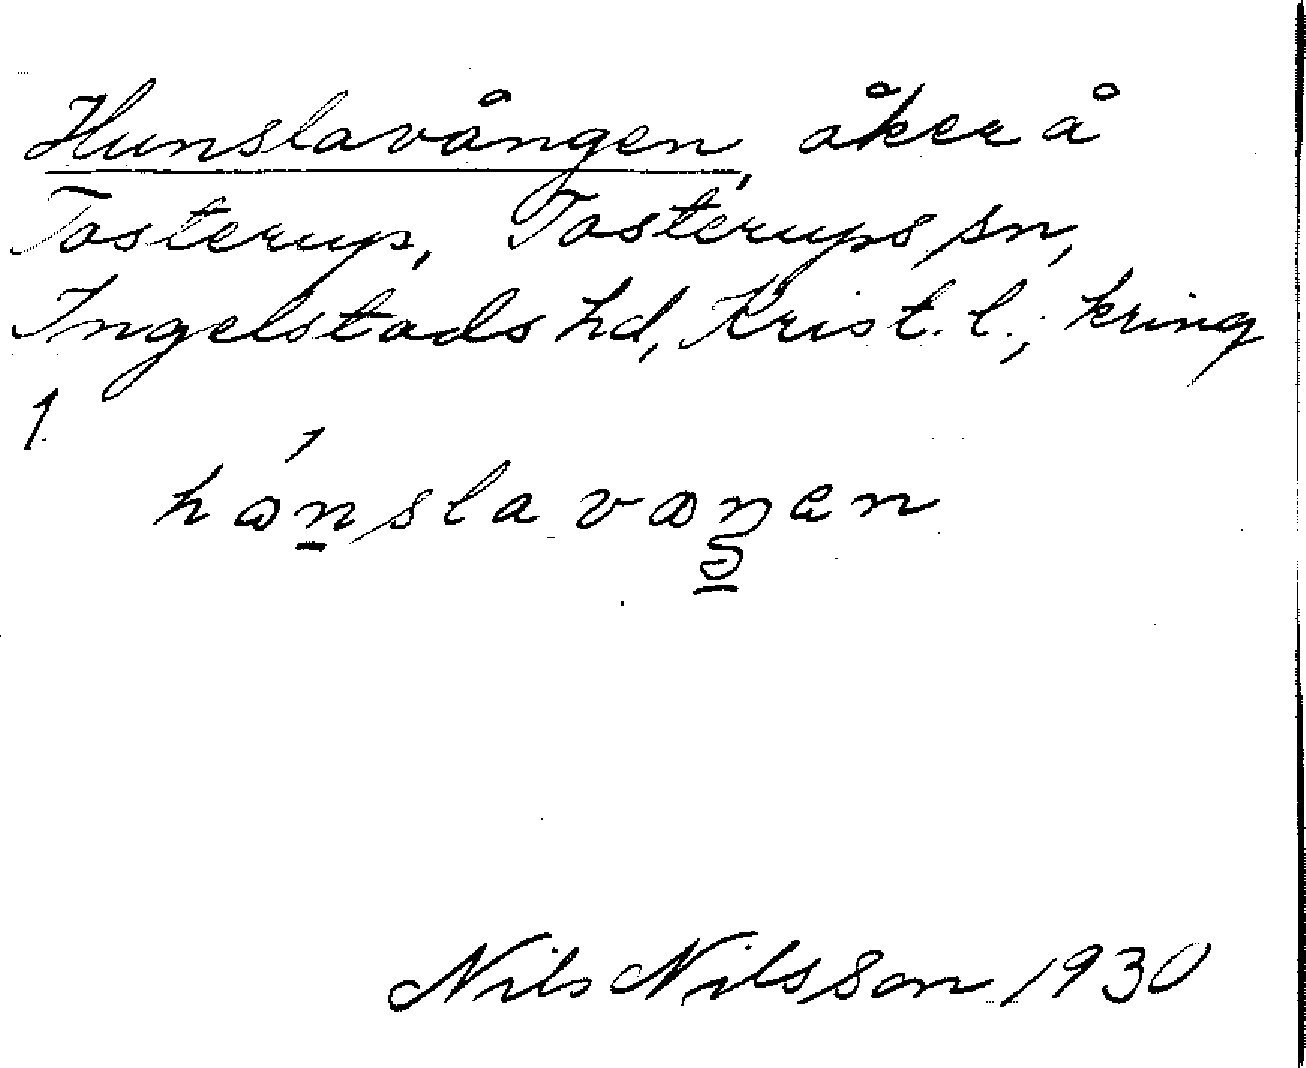 Hunslavången, åker å
Tosterup, Tosterups sn,
Ingelstads hd, Krist. l.; kring
1.
hónslavoŋen
Nils Nilsson 1930